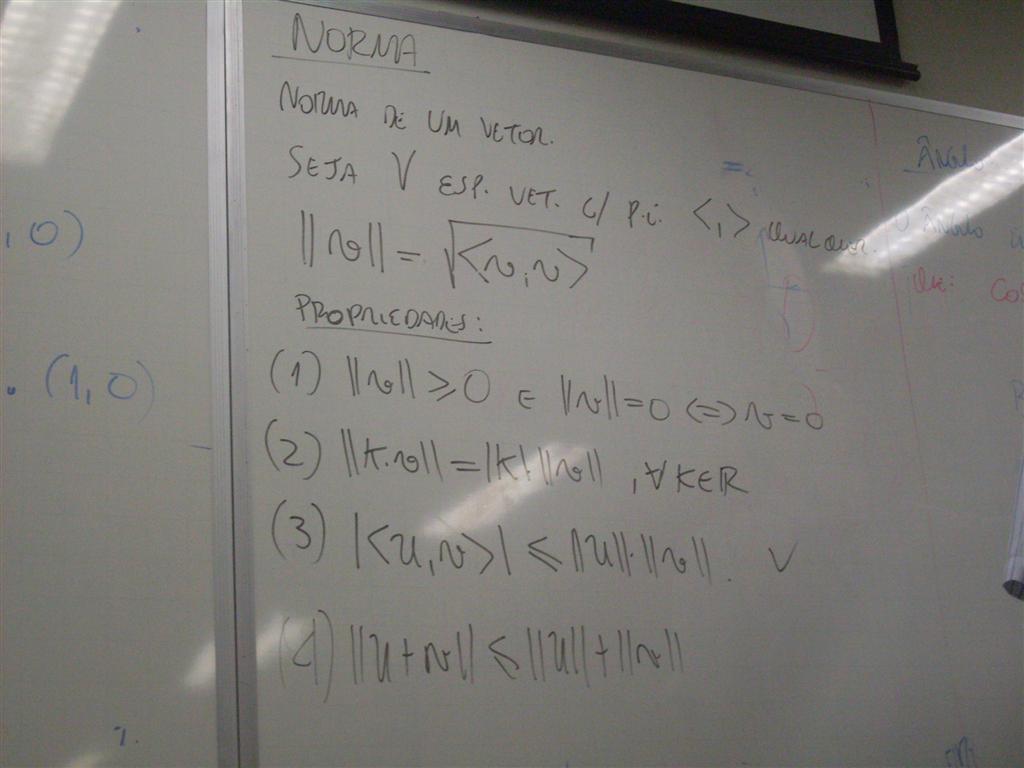 , 0)
. (1, 0)
NORMA
NORMA DE UM VETOR.
SEJA V ESP. VET. C/ P.i. <,> QUALQUER.
||v|| = √<v,v>
PROPRIEDADES:
(1) ||v|| ≥ 0 E ||v|| = 0 <=> v = 0
(2) ||K.v|| = |K|.||v|| , ∀ K ∈ R
(3) |<u,v>| ≤ ||u||.||v||. V
(4) ||u + v|| ≤ ||u|| + ||v||
Ângulo
O Ângulo
que: Cos